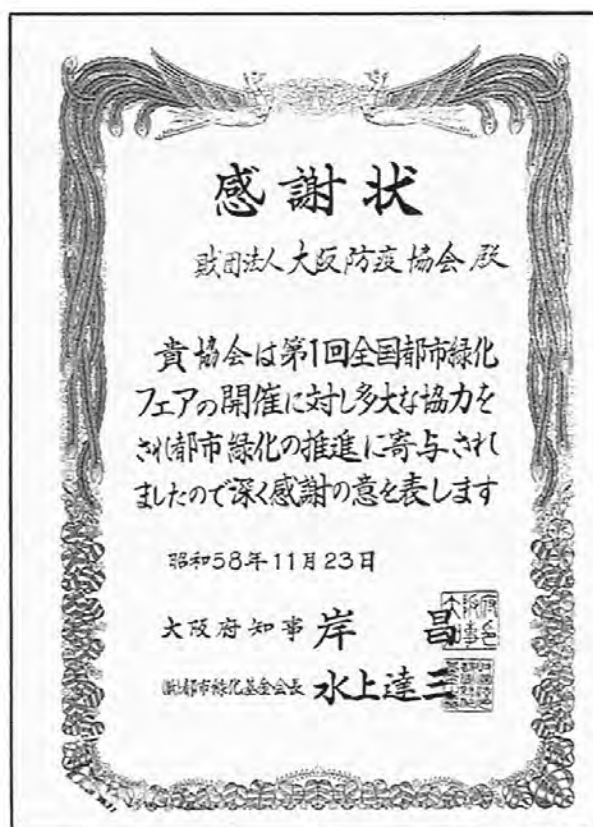 感謝状
財団法人大阪防疫協会 殿
貴協会は第1回全国都市緑化
フェアの開催に対し多大な協力を
され都市緑化の推進に寄与され
ましたので深く感謝の意を表します
昭和58年11月23日
大阪府知事 岸 昌
(財)都市緑化基金会長 水上達三